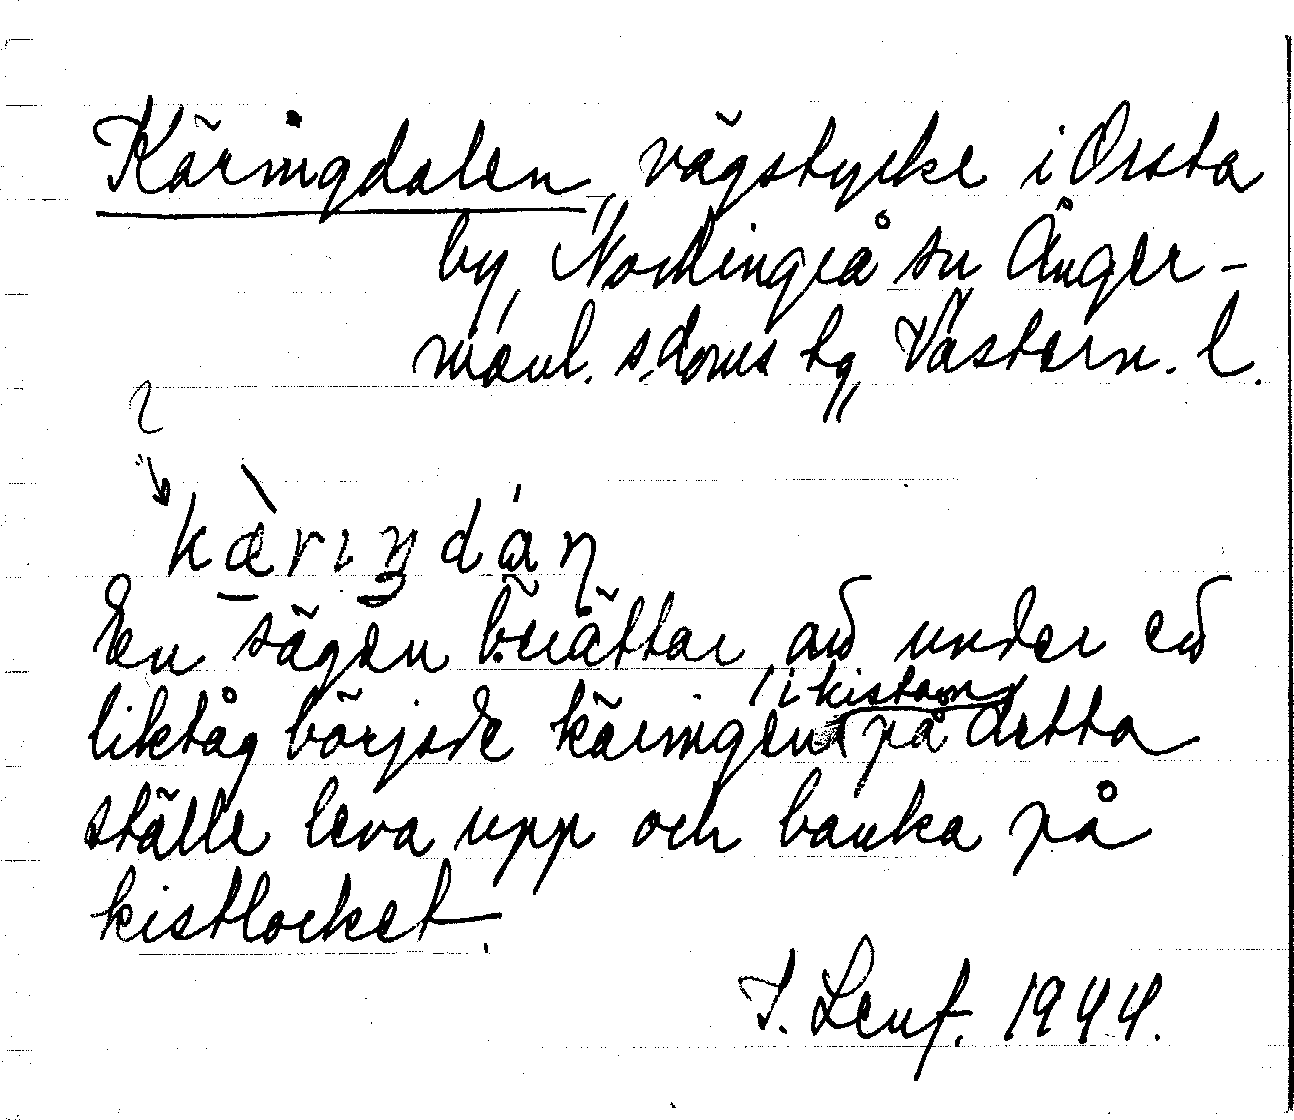 Käringdalen, vägstycke i Orsta
by, Nordingrå sn Ånger-
manl. s. doms hg, Västern. l.
kæ̀riŋdáṇ
En sägen berättar att under ett
liktåg började käringen i kistan på detta
ställe leva upp och banka på
kistlocket.
J. Lenf. 1944.